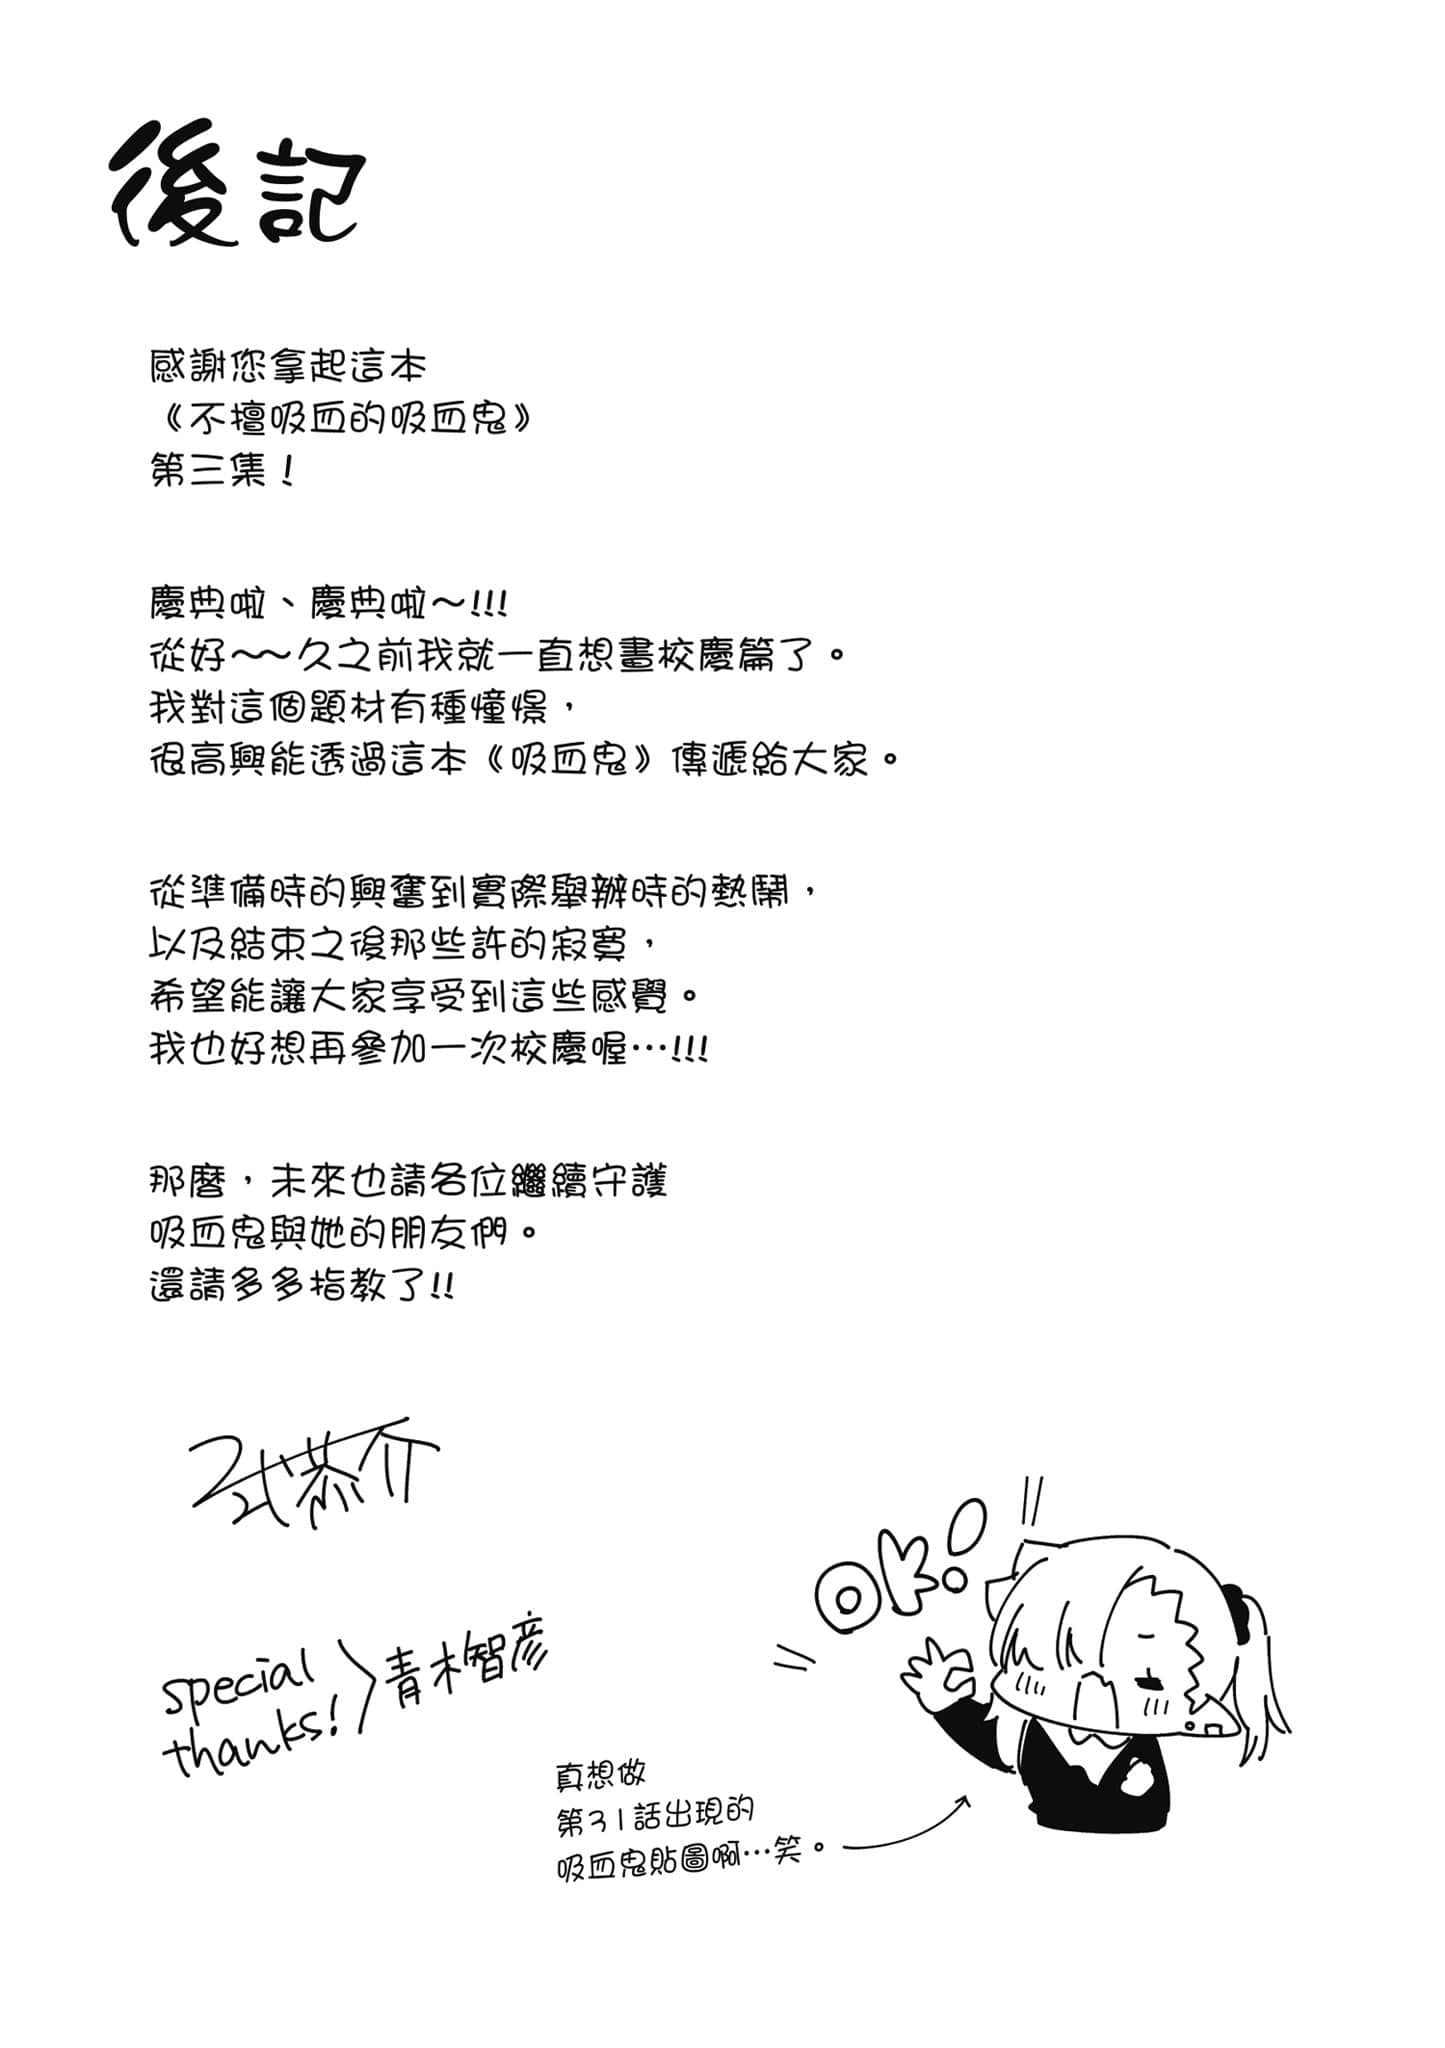 後記
感謝您拿起這本
《不擅吸血的吸血鬼》
第三集！
慶典啦、慶典啦～!!!
從好～～久之前我就一直想畫校慶篇了。
我對這個題材有種憧憬，
很高興能透過這本《吸血鬼》傳遞給大家。
從準備時的興奮到實際舉辦時的熱鬧，
以及結束之後那些許的寂寞，
希望能讓大家享受到這些感覺。
我也好想再參加一次校慶喔…!!!
那麼，未來也請各位繼續守護
吸血鬼與她的朋友們。
還請多多指教了!!
式恭介
special
thanks!
青木智彦
OK!
真想做
第31話出現的
吸血鬼貼圖啊…笑。